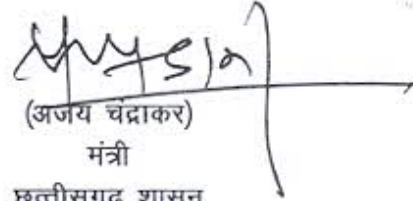 (अजय चंद्राकर)
मंत्री
छत्तीसगढ़ शासन